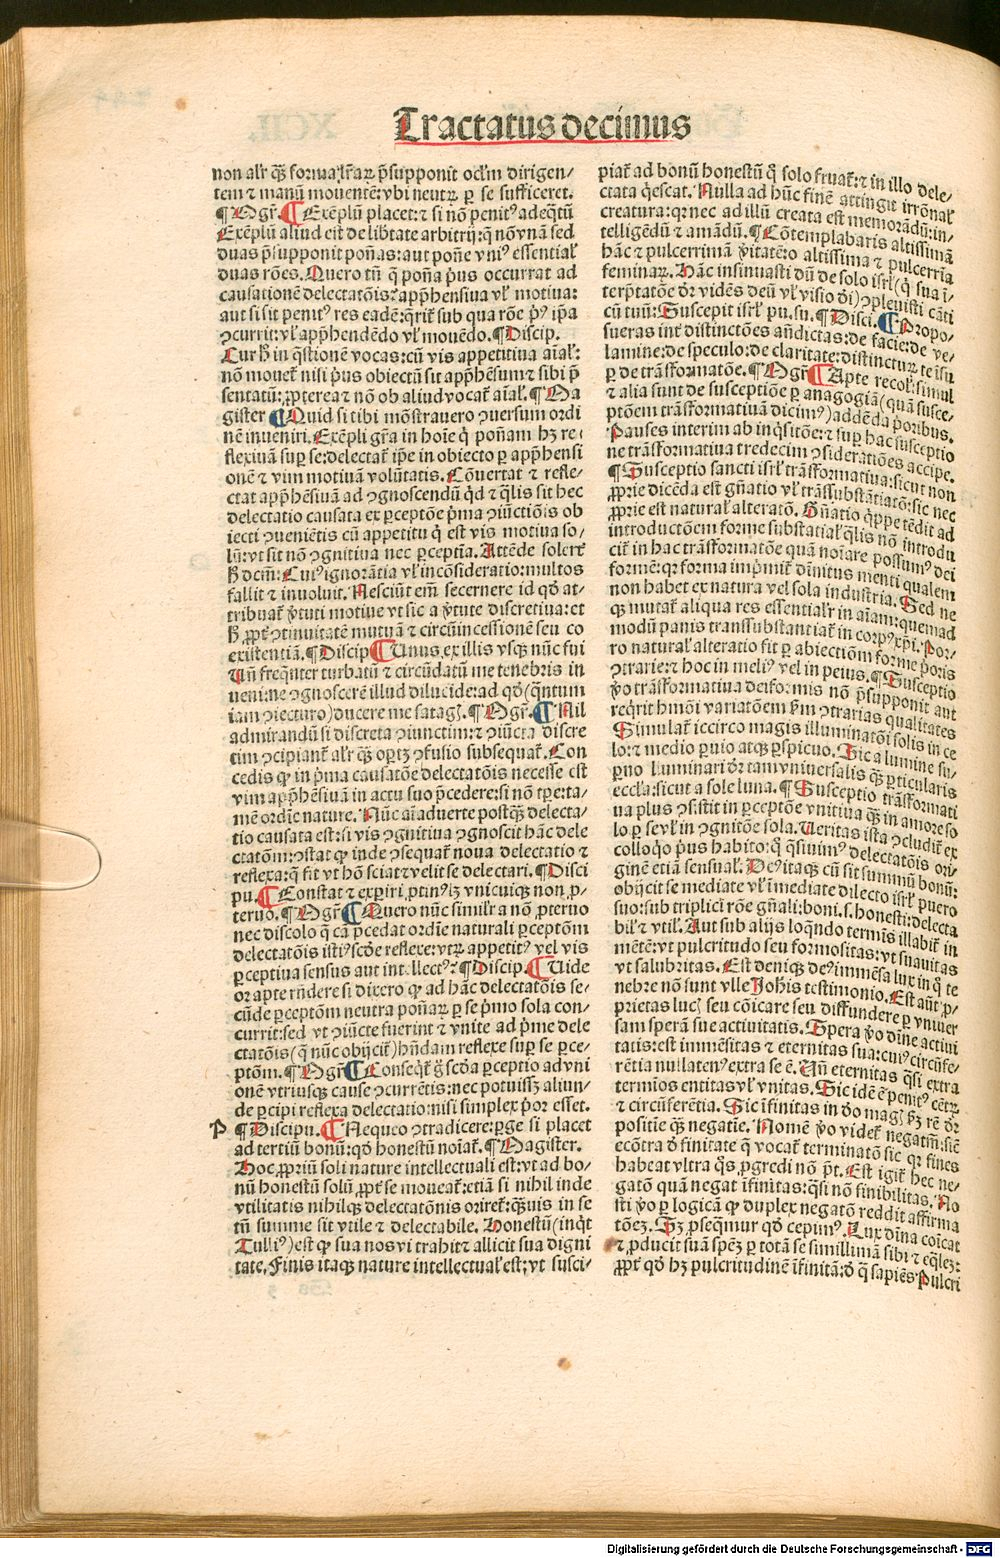 Tractatus decimus
non alr̄ qȝ̄ forma lr̄aꝝ p̄supponit oclm̄ dirigen/
tem ⁊ manū mouentē: vbi neutꝝ ꝑ se sufficeret.
¶ Mgr̄. ¶ Exēplū placet: ⁊ si nō penitꝰ adeq̄tū
Exēplū aliud est de lib̄tate arbitrij: q̄ nō vnā sed
duas p̄supponit pōñas: aut pōñe vniꝰ essential̓
duas rōes. Quero tn̄ q̄ pōña p̓us occurrat ad
causationē delectatōis? app̄hensiua vl̓ motiua:
aut si sit penitꝰ res eadē: q̄rit̓ sub qua rōe p̓ꝰ ip̄a
ꝯcurrit: vl̓ app̄hendēdo vl̓ mouēdo. ¶ Discip.
Cur h̄ in q̄stionē vocas: cū vis appetitiua aīal̓:
nō mouet̓ nisi p̓us obiectū sit app̄hēsum ⁊ sibi p̄
sentatū: ꝓpterea ⁊ nō ob aliud vocat̓ aīal̓. ¶ Ma
gister ¶ Quid si tibi mōstrauero ꝯuersum ordi
nē inueniri. Exēpli gr̄a in hoīe q̓ pōñam hȝ re/
flexiuā suꝑ se: delectat̓ ip̄e in obiecto ꝑ app̄hensi
onē ⁊ vim motiuā volūtatis. Cōuertat ⁊ refle/
ctat app̄hēsiuā ad ꝯgnoscendū q̓d ⁊ q̄lis sit hec
delectatio causata ex ꝑceptōe p̓ma ꝯiūctiōis ob
iecti ꝯueniētis cū appetitu q̓ est vis motiua so/
lū: vt sit nō ꝯgnitiua nec ꝑceptia. Attēde solert̓
h̄ dcm̄: Cuiꝰ ignorātia vl̓ incōsideratio: multos
fallit ⁊ inuoluit. Nesciūt em̄ secernere id qd̓ at/
tribuat̓ v̓tuti motiue vt sic a v̓tute discretiua: et
h̄ ꝓpt̓ ꝯtinuitatē mutuā ⁊ circūincessionē seu co
existentiā. ¶ Discip ¶ Unus ex illis vsqȝ nūc fui
Un̄ freq̄nter turbatū ⁊ circūdatū me tenebris in
ueni: ne ꝯgnoscerē illud dilucide: ad qd̓ (q̄ntum
iam ꝯiecturo) ducere me satagꝭ. ¶ Mgr̄. ¶ Nil
admirandū si discreta ꝯiunctim: ⁊ ꝯiūcta discre
tim ꝯcipiant̓ alr̄ qȝ̄ oꝑtȝ ꝯfusio subsequat̓. Con
cedis ꝙ in p̓ma causatōe delectatōis necesse est
vim app̄hēsiuā in actu suo p̄cedere: si nō tꝑe: ta/
mē ordīe nature. Nūc aīaduerte postqȝ̄ delecta/
tio causata est: si vis ꝯgnitiua ꝯgnoscit hāc dele
ctatōm: ꝯstat ꝙ inde ꝯsequat̓ noua delectatio ⁊
reflexa: q̄ fit vt hō sciat ⁊ velit se delectari. ¶ Disci
pu. ¶ Constat ⁊ expiri ꝑtinꝰ lȝ vnicuiqȝ non ꝓ/
teruo. ¶ Mgr̄ ¶ Quero nūc simil̓r a nō ꝓteruo
nec discolo q̄ cā p̄cedat ordīe naturali ꝑceptōm
delectatōis istiꝰ scd̄e reflexe: vtꝝ appetitꝰ vel vis
ꝑceptiua sensus aut intellectꝰ? ¶ Discip. ¶ Uide
or apte rn̄dere si dixero ꝙ ad hāc delectatōis se/
cūde ꝑceptōm neutra pōñaꝝ ꝑ se p̓mo sola con/
currit: sed vt ꝯiūcte fuerint ⁊ vnite ad p̓me dele
ctatōis (q̄ nūc obijcit̓) hn̄dam reflexe suꝑ se ꝑce/
ptōm. ¶ Mgr̄ ¶ Conseq̄t̓ ḡ scd̄a ꝑceptio ad vni
onē vtriusqȝ cause ꝯcurrētis: nec potuissȝ aliun/
de ꝑcipi reflexa delectatio: nisi simplex p̓or esset.
P ¶ Discipu. ¶ Nequeo ꝯtradicere: ꝑge si placet
ad tertiū bonū: qd̓ honestū noīat̓. ¶ Magister.
Hoc ꝓpriū soli nature intellectuali est: vt ad bo/
nū honestū solū ꝓpt̓ se moueat̓: etiā si nihil inde
vtilitatis nihilqȝ delectatōis oriret̓: qȝ̄uis in se
tn̄ summe sit vtile ⁊ delectabile. Honestū (inq̓t
Tulliꝰ) est ꝙ sua nos vi trahit ⁊ allicit sua digni
tate. Finis itaqȝ nature intellectual̓ est: vt susci/
piat̓ ad bonū honestū q̓ solo fruat̓: ⁊ in illo dele/
ctata q̓escat. Nulla ad hūc finē attingit irrōnal̓
creatura: qꝛ nec ad illū creata est memorādū: in/
telligēdū ⁊ amādū. ¶ Cōtemplabaris altissimā
hāc ⁊ pulcerrimā v̓itatē: o altissima ⁊ pulcerria
feminaꝝ. Hāc insinuasti dū de solo isrl̓ (q̄ sua ī/
terp̄tatōe dr̄ vidēs deū vl̓ visio dī) ꝯpleuisti cāti
cū tuū: Suscepit isrl̓ pu. su. ¶ Disci. ¶ Propo/
sueras int̓ distinctōes an̄dictas: de facie: de ve/
lamine: de speculo: de claritate: distinctuꝝ te isu
ꝑ de trāsformatōe. ¶ Mgr̄ ¶ Apte recol̓: simul
⁊ alia sunt de susceptiōe ꝑ anagogiā (quā susce/
ptōem trāsformatiuā dicimꝰ) addēda p̓oribus.
Pauses interim ab inq̓sitōe: ⁊ suꝑ hac susceptio
ne trāsformatiua tredecim ꝯsideratiōes accipe.
¶ Susceptio sancti isrl̓ trāsformatiua: sicut non
ꝓprie dicēda est gn̄atio vl̓ trāssubstātiatō: sic nec
ꝓprie est natural̓ alteratō. Gn̄atio q̓ppe tēdit ad
introductōem forme substātial̓ q̄lis nō introdu
cit̓ in hac trāsformatōe quā noīare possumꝰ dei
formē: qꝛ forma imp̓mit̓ dīnitus menti qualem
non habet ex natura vel sola industria. Sed ne
qȝ mutat̓ aliqua res essential̓r in aīam: quemad
modū panis transsubstantiat̓ in corpꝰ xp̄i. Por/
ro natural̓ alteratio fit ꝑ abiectiōm forme p̓oris
ꝯtrarie: ⁊ hoc in meliꝰ vel in peius. ¶ Susceptio
v̓o trāsformatiua deiformis nō p̄supponit aut
req̓rit hmōi variatōem scd̄m ꝯtrarias qualitates
Simulat̓ iccirco magis illuminatōi solis in ce
lo: ⁊ medio ꝑuio atqȝ ꝑspicuo. Sic a lumine su/
ꝑno luminari dr̄ tam vniuersalis qȝ̄ ꝑticularis
eccl̓a: sicut a sole luna. ¶ Susceptio trāsformati
ua plus ꝯsistit in ꝑceptōe vnitiua qȝ̄ in amore so
lo ꝑ se vl̓ in ꝯgnitōe sola. Ueritas ista ꝯcludit̓ ex
colloq̓o p̓us habito: q̓ q̄siuimꝰ delectatōis ori/
ginē etiā sensual̓. Deꝰ itaqȝ cū sit summū bonū:
obijcit se mediate vl̓ īmediate dilecto isrl̓ puero
suo: sub triplici rōe gn̄ali: boni. s. honesti: delecta
bil̓ ⁊ vtil̓. Aut sub alijs loq̄ndo termīs illabit̓ in
mētē: vt pulcritudo seu formositas: vt suauitas
vt salubritas. Est deniqȝ deꝰ immēsa lux in q̓ te
nebre nō sunt vlle Joh̄is testimonio. Est aūt ꝓ/
prietas lucꝭ seu cōicare seu diffundere ꝑ vniuer
sam sperā sue actiuitatis. Spera v̓o dīne actiui
tatis: est immēsitas ⁊ eternitas sua: cuiꝰ circūfe/
rētia nullatenꝰ extra se ē. Un̄ eternitas q̄si extra
termīos entitas vl̓ vnitas. Sic idē ē penitꝰ cētꝝ
⁊ circūferētia. Sic īfinitas in dō magꝭ hȝ rē dr̄
positiōe qȝ̄ negatiōe. Nomē v̓o videt̓ negatm̄: sic̄
ecōtra d̓ finitate q̄ vocat̓ terminatō sic qꝛ fines
habeat vltra q̓s ꝓgredi nō p̄t. Est igit̓ hec ne/
gatō quā negat īfinitas: q̄si nō finibilitas. No
sti v̓o ꝑ logicā ꝙ duplex negatō reddit affirma
tōeȝ. Sȝ ꝓseq̄mur qd̓ cepimꝰ. Lux dīna cōicat
⁊ ꝓducit suā spēȝ ꝑ totā se simillimā sibi ⁊ eq̄leȝ:
ꝓpt̓ qd̓ hȝ pulcritudinē īfinitā: d̓ q̄ sapiēs Pulcri
Digitalisierung gefördert durch die Deutsche Forschungsgemeinschaft - DFG